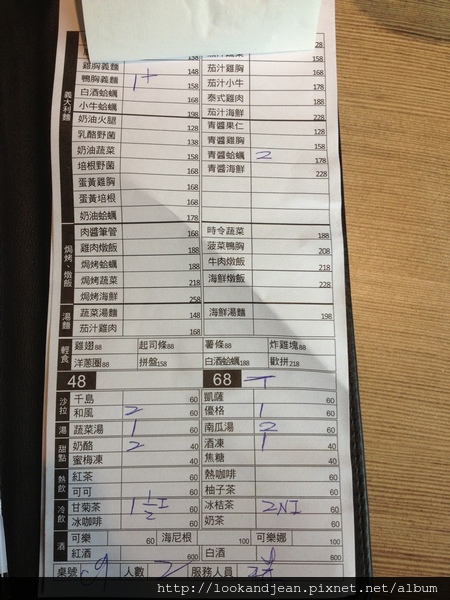 138 28
雞胸義麵 148 茄汁雞胸 158
鴨胸義麵 1 158 茄汁小牛 168
白酒蛤蠣 168 泰式雞肉 178
小牛蛤蠣 198 茄汁海鮮 188
義大利麵
奶油火腿 128 青醬果仁 228
乳酪野菌 138 青醬雞胸 128
奶油蔬菜 158 青醬蛤蠣 2 158
培根野菌 168 青醬海鮮 178
蛋黃雞胸 168 228
蛋黃培根 168
奶油蛤蠣 178
焗烤、燉飯
肉醬筆管 168 時令蔬菜 188
雞肉燉飯 188 菠菜鴨胸 208
焗烤蛤蠣 188 牛肉燉飯 218
焗烤蔬菜 218 海鮮燉飯 228
焗烤海鮮 258
湯麵
蔬菜湯麵 148 海鮮湯麵 198
茄汁雞肉 168
輕食
雞翅88 起司條88 薯條88 炸雞塊88
洋蔥圈88 拼盤158 白酒蛤蠣188 歡拼218
48 68
沙拉
千島 60 凱薩 60
和風 2 60 優格 1 60
湯 蔬菜湯 1 60 南瓜湯 2 60
甜點
奶酪 2 40 酒凍 1 40
蜜梅凍 40 焦糖 40
熱飲
紅茶 60 熱咖啡 60
可可 60 柚子茶 60
冷飲
甘菊茶 60 冰桔茶 60
冰咖啡 60 奶茶 60
酒
可樂 60 海尼根 100 可樂娜 100
紅酒 600 白酒 600
桌號 人數 2 服務人員
http://lookandjean.pixnet.net/album